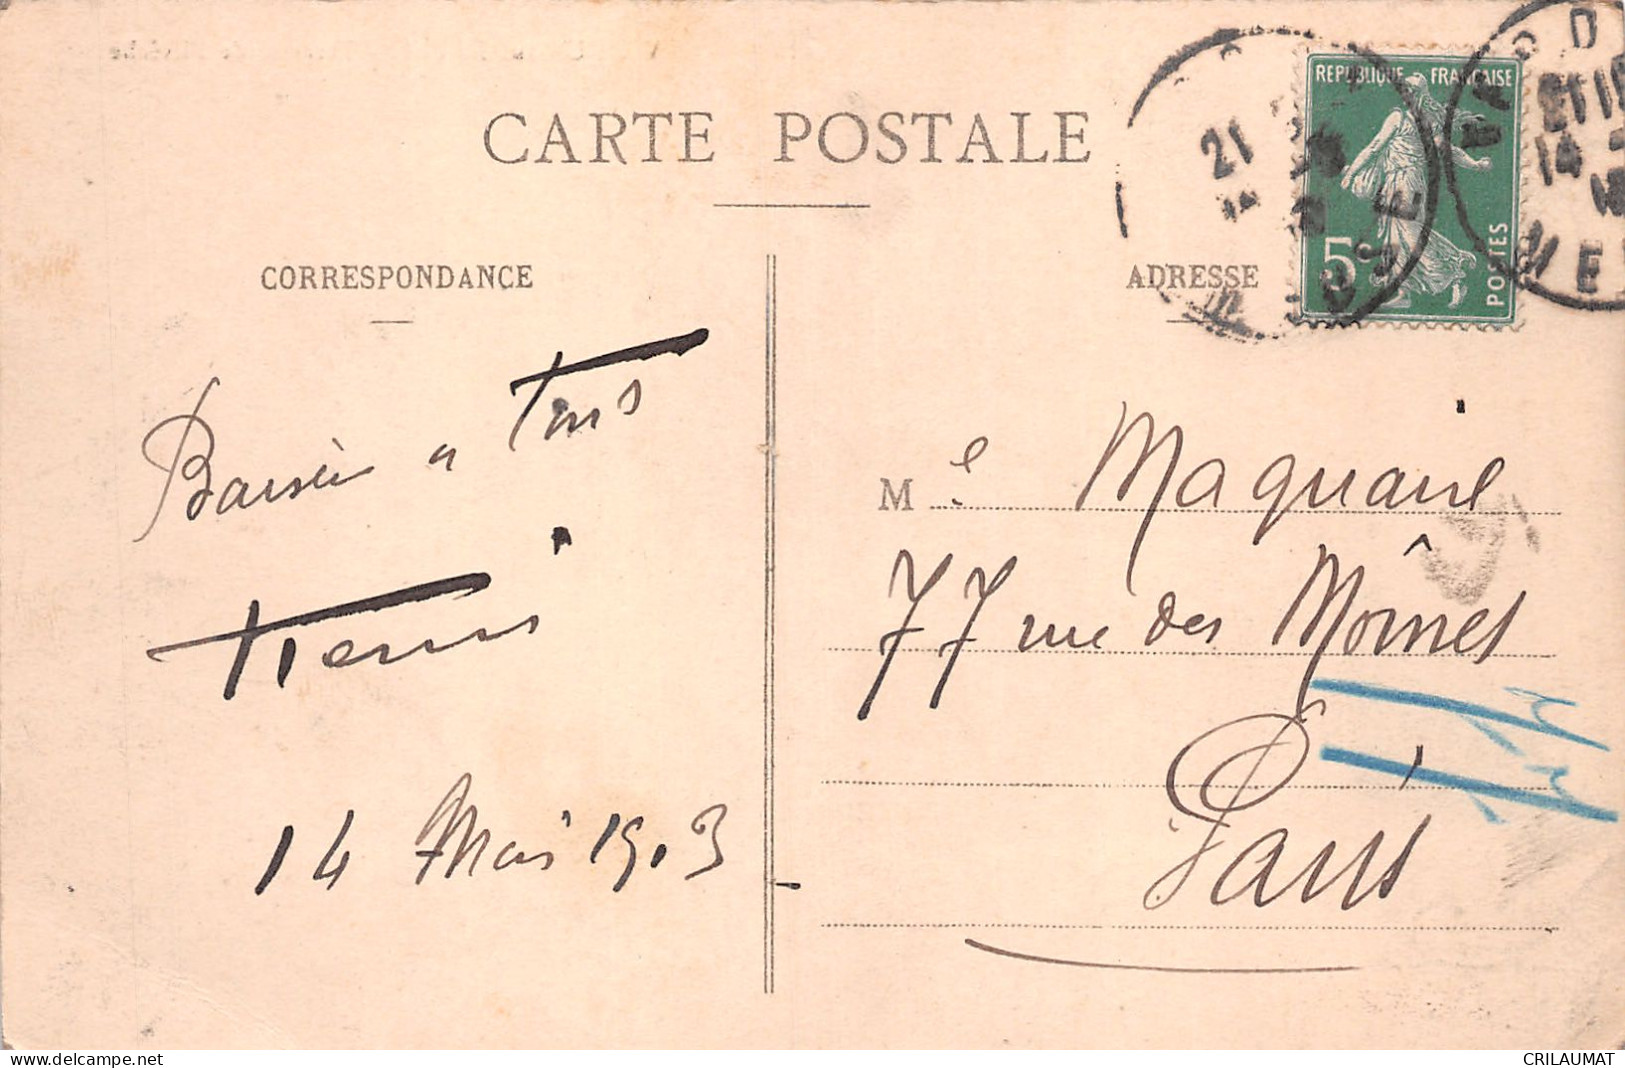 CARTE POSTALE
REPUBLIQUE FRANÇAISE
5c
POSTES
21
14
CORRESPONDANCE
ADRESSE
Baisers à Tous
14 Mai 1903
M e. Maquaire
77 rue des Moines
Paris
www.delcampe.net
CRILAUMAT